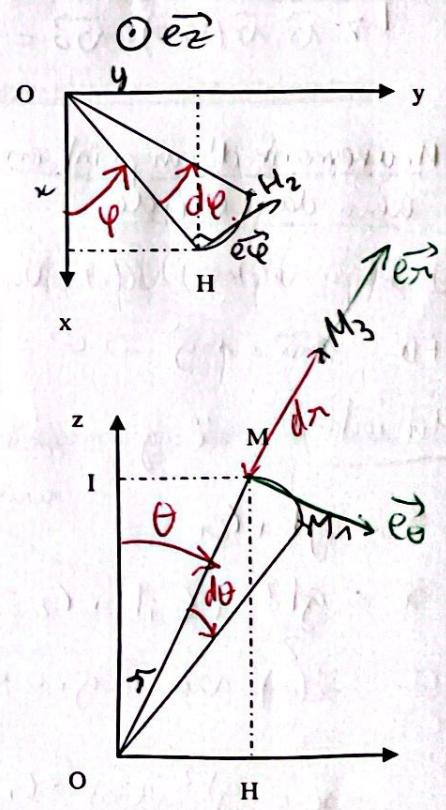 ⊙ ez
O y y
x φ dφ H2
eφ
H
x
er
M3
dr
z
M
I
θ M1 eθ
dθ
r
O H